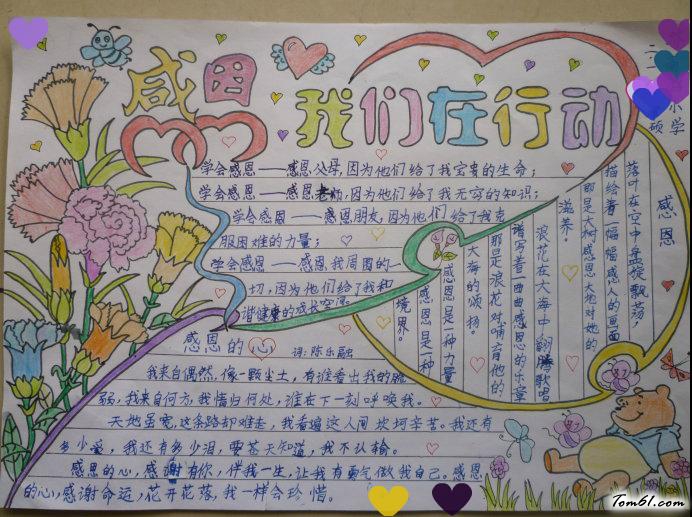 感恩
我们在行动
二
小学
硕
学会感恩——感恩父母,因为他们给了我宝贵的生命;
学会感恩——感恩老师,因为他们给了我无穷的知识;
学会感恩——感恩朋友,因为他们给了我克
服困难的力量;
学会感恩——感恩我周围的一
切,因为他们给了我和
谐健康的成长空间
感恩
落叶在空中盘旋飘荡,
描绘着一幅幅感人的画面
那是大树感恩大地对她的
滋养。
浪花在大海中翻腾歌唱
谱写着一曲曲感恩的乐章
那是浪花对哺育他的
大海的颂扬。
感恩是一种力量
感恩是一种
境界。
感恩的心 词:陈乐融
我来自偶然,像一颗尘土,有谁看出我的脆
弱,我来自何方,我情归何处,谁在下一刻呼唤我。
天地虽宽,这条路却难走,我看遍这人间坎坷辛苦。我还有
多少爱,我还有多少泪,要苍天知道,我不认输。
感恩的心,感谢有你,伴我一生,让我有勇气做我自己。感恩
的心,感谢命运,花开花落,我一样会珍惜。
Tom61.com